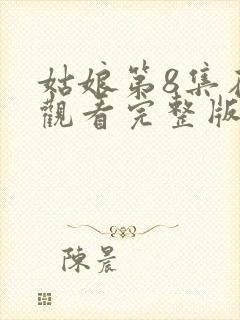 姑娘第8集在
觀看完整版
陳晨